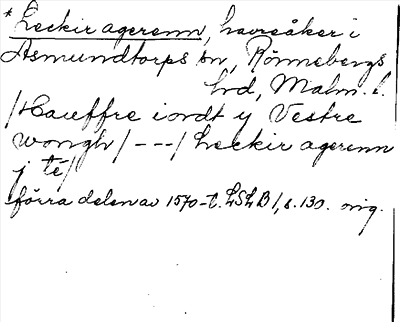 * Leckir agerenn, havreåker i
Asmundtorps sn, Rönnebergs
hrd, Malm. l.
/Hauffre iordt y Vestre
wongh/ - - - / Leckir agerenn
j té/
förra delen av 1570-t. LSLB 1, s. 130. orig.